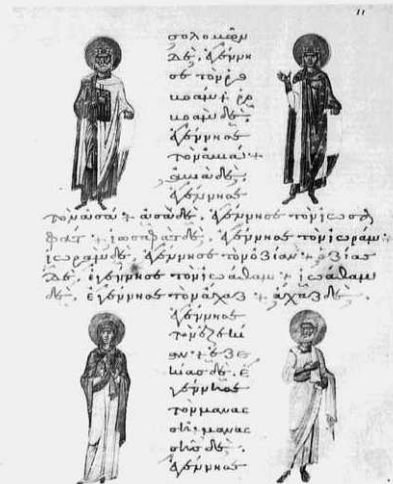 11
σολομὼν
δὲ, ἐγέννη
σε τὸν ῥο
βοάμ· ῥο
βοὰμ δὲ,
ἐγέννησε
τὸν ἀβιά· +
ἀβιὰ δὲ,
ἐγέννησε
τὸν ἀσά· + ἀσὰ δὲ, ἐγέννησε τὸν ἰωσα
φάτ· + ἰωσαφὰτ δὲ, ἐγέννησε τὸν ἰωράμ·
ἰωρὰμ δὲ, ἐγέννησε τὸν ὀζίαν· + ὀζίας
δὲ, ἐγέννησε τὸν ἰωάθαμ· + ἰωάθαμ
δὲ, ἐγέννησε τὸν ἄχαζ· + ἄχαζ δὲ,
ἐγέννησε
τὸν ἐζεκί
αν· + ἐζε
κίας δὲ, ἐ
γέννησε
τὸν μανας
σῆ· μανας
σῆς δὲ,
ἐγέννησε